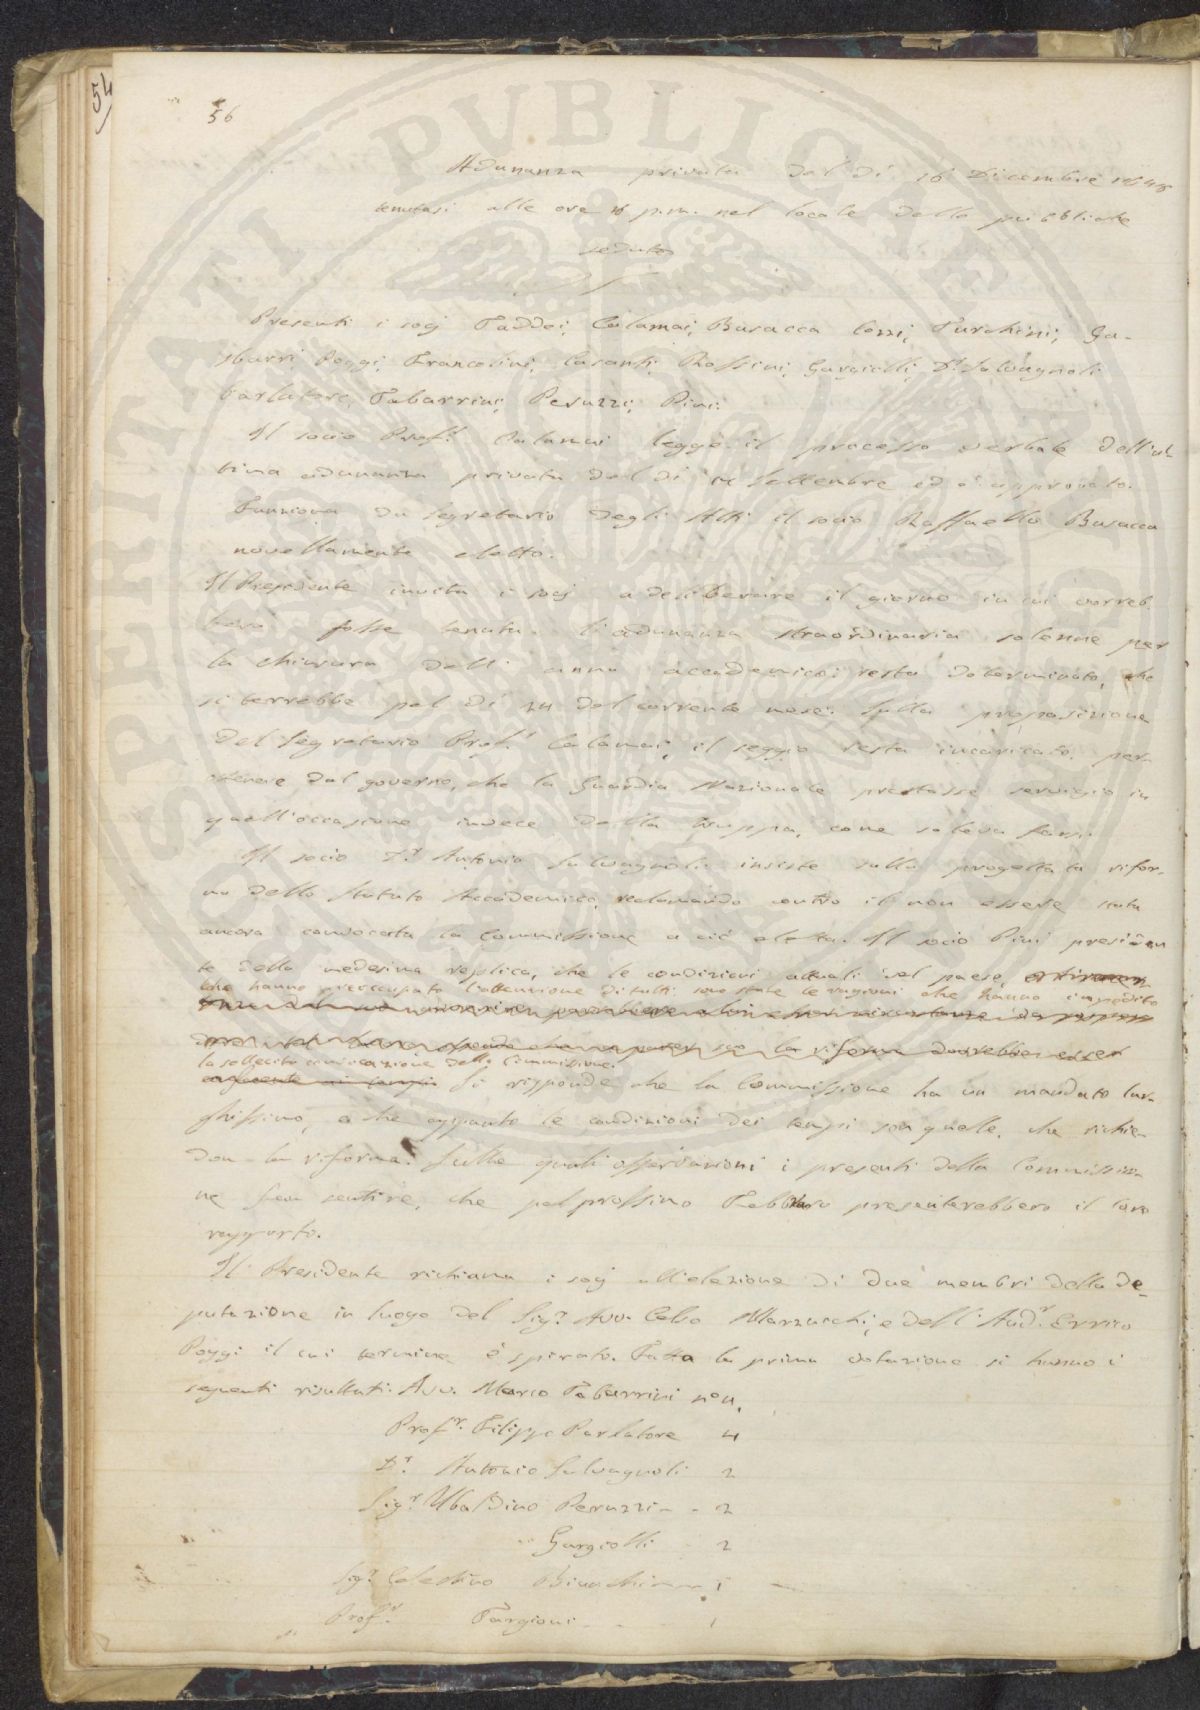 54
56
Adunanza privata del dì 16 Dicembre 1848
tenutasi alle ore 6 p.m. nel locale delle pubbliche
sedute
Presenti i socj Taddei, Calamai, Busacca Cozzi, Turchini, Ga-
sbarri Poggi, Francolini, Casanti, Rossini, Gargiolli, Dr. Salvagnoli
Parlatore, Tabarrini, Peruzzi, Pini.
Il socio Profr. Calamai legge il processo verbale dell'ul-
tima adunanza privata del dì Settembre ed è approvato.
Funziona da Segretario degli Atti il socio Raffaello Busacca
novellamente eletto.
Il Presidente invita i socj a deliberare il giorno in cui vorreb
bero fosse tenuta l'adunanza straordinaria solenne per
la chiusura dell'anno accademico; resta determinato, che
si terrebbe pel dì 24 del corrente mese. Sulla proposizione
del Segretario Profr. Calamai, il seggio resta incaricato, per
ottenere dal governo, che la Guardia Nazionale prestasse servigio in
quell'occasione invece della truppa, come soleva farsi.
Il socio Dr. Antonio Salvagnoli insiste sulla progettata rifor-
ma dello Statuto Accademico, reclamando contro il non essere stata
ancora convocata la Commissione a ciò eletta. Il socio Pini presiden
te della medesima replica, che le condizioni attuali del paese,
che hanno preoccupato l'attenzione di tutti sono state le ragioni che hanno impedito
la riforma dovrebbe esser
la sollecita convocazione della Commissione.
Si risponde che la Commissione ha un mandato lar-
ghissimo, e che appunto le condizioni dei tempi son quelle, che richie-
don la riforma. Sulle quali osservazioni i presenti della Commissio-
ne fan sentire, che pel prossimo Febbraro presenterebbero il loro
rapporto.
Il Presidente richiama i socj all'elezione di due membri della de-
putazione in luogo del Sigr. Avv. Celso Marzucchi, e dell'Aud. Errico
Poggi il cui termine è spirato. Fatta la prima votazione si hanno i
seguenti risultati: Avv. Marco Tabarrini
Profr. Filippo Parlatore 4
Dr. Antonio Salvagnoli 2
Sigr. Ubaldino Peruzzi - - 2
Gargiolli 2
Sigr. Celestino Bianchi - - 1
Profr. Targioni - - 1